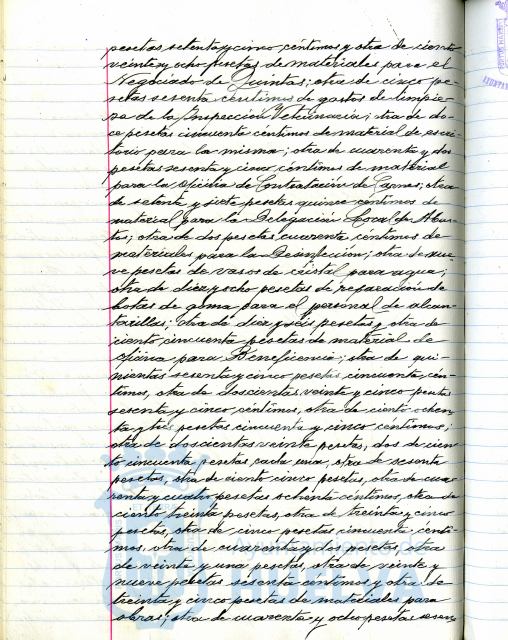 pesetas setenta y cinco céntimos y otra de ciento
veinte y ocho pesetas de materiales para el
Negociado de Quintas; otra de cinco pe-
setas sesenta céntimos de gastos de limpie-
za de la Inspección Veterinaria; otra de do-
ce pesetas cincuenta céntimos de material de escri-
torio para la misma; otra de cuarenta y dos
pesetas sesenta y cinco céntimos de material
para la oficina de Contratación de Carnes; otra
de setenta y siete pesetas quince céntimos de
material para la Delegación Local de Abas-
tos; otra de dos pesetas cuarenta céntimos de
materiales para la Desinfección; otra de nue-
ve pesetas de vasos de cristal para agua;
otra de diez y ocho pesetas de reparación de
botas de goma para el personal de alcan-
tarillas; otra de diez y seis pesetas y otra de
ciento cincuenta pesetas de material de
oficina para Beneficencia; otra de qui-
nientas sesenta y cinco pesetas cincuenta cén-
timos, otra de doscientas veinte y cinco pesetas
sesenta y cinco céntimos, otra de ciento ochen
ta y tres pesetas cincuenta y cinco céntimos;
otra de doscientas veinte pesetas, dos de cien
to cincuenta pesetas cada una, otra de sesenta
pesetas, otra de ciento cinco pesetas, otra de cua
renta y cuatro pesetas ochenta céntimos, otra de
ciento treinta pesetas, otra de treinta y cinco
pesetas, otra de cinco pesetas cincuenta cénti-
mos, otra de cuarenta y dos pesetas, otra
de veinte y una pesetas, otra de veinte y
nueve pesetas sesenta céntimos y otra de
treinta y cinco pesetas de materiales para
obras; otra de cuarenta y ocho pesetas
Ayuntamiento de
HUELVA